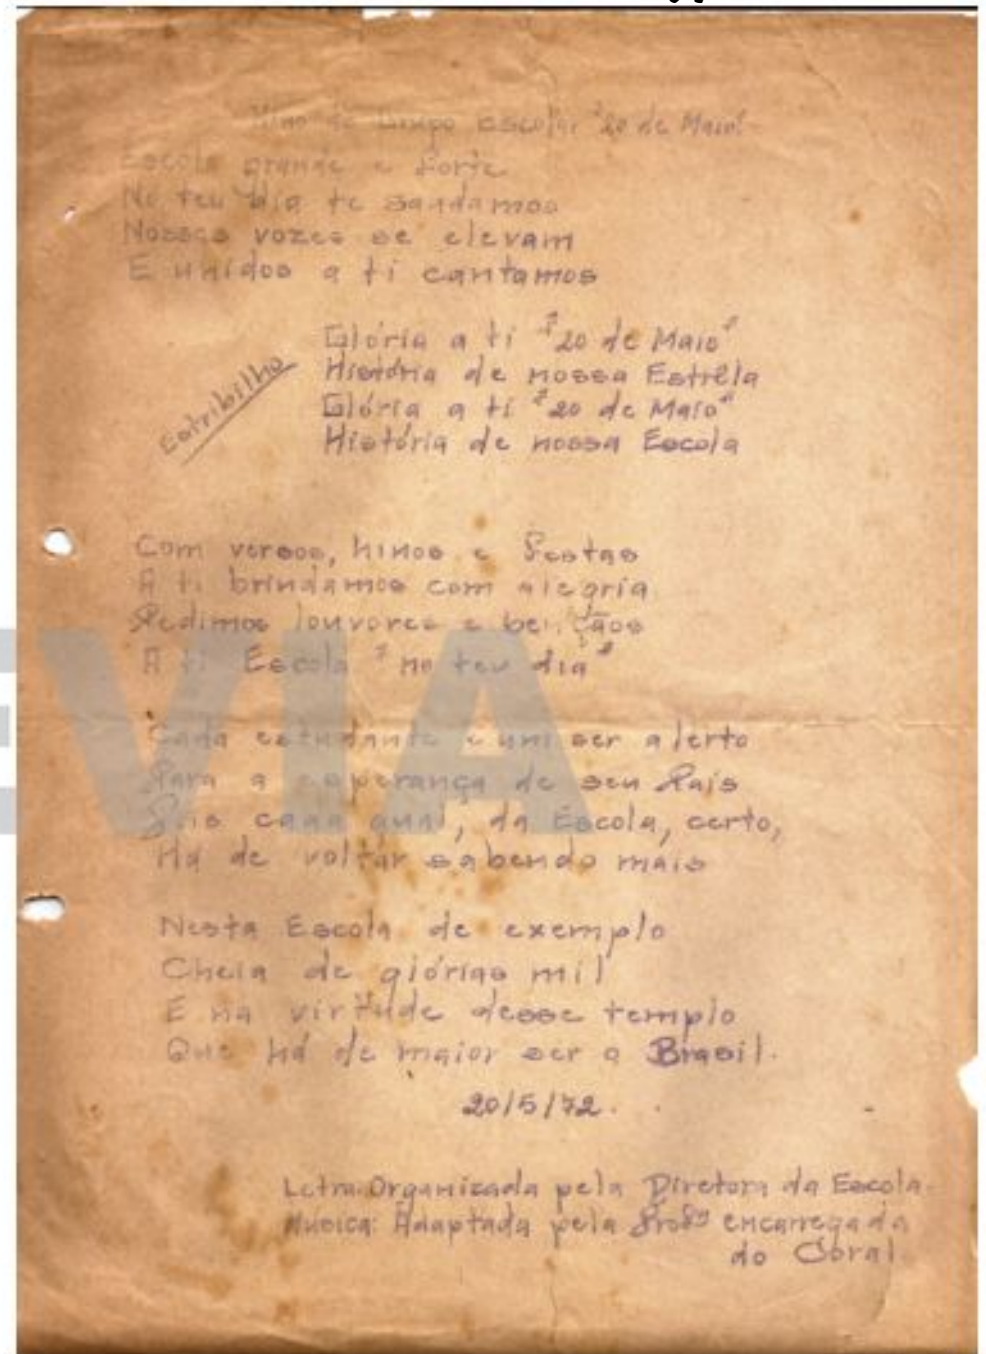 Hino do Grupo Escolar "20 de Maio"
Escola grande e forte
No teu dia te saudamos
Nossas vozes se elevam
E unidos a ti cantamos
Estribilho
Glória a ti "20 de Maio"
História de nossa Estrela
Glória a ti "20 de Maio"
História de nossa Escola
Com versos, hinos e festas
A ti brindamos com alegria
Pedimos louvores e bençãos
A ti Escola "no teu dia"
Cada estudante é um ser alerto
Para a esperança de seu País
Pois cada qual, da Escola, certo,
Há de voltar sabendo mais
Nesta Escola de exemplo
Cheia de glórias mil
E na virtude desse templo
Que há de maior ser o Brasil.
20/5/72.
Letra: Organizada pela Diretora da Escola
Musica: Adaptada pela Profª encarregada
do Coral
EVIA